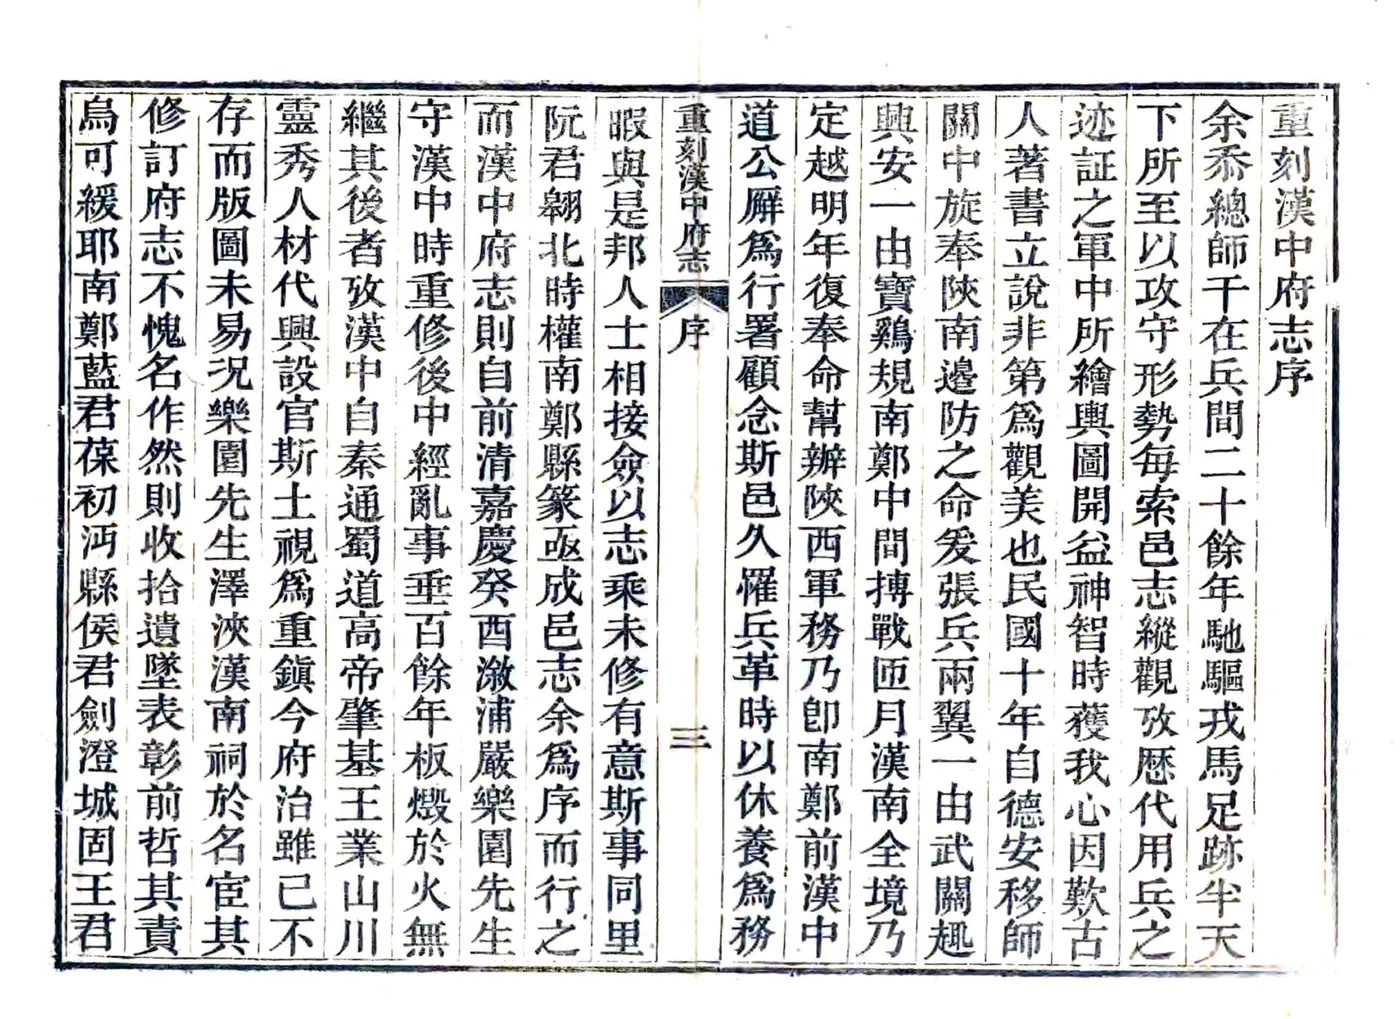 重刻漢中府志序
余忝總師干在兵間二十餘年馳驅戎馬足跡半天
下所至以攻守形勢每索邑志縱觀攷歷代用兵之
迹証之軍中所繪輿圖開益神智時獲我心因歎古
人著書立說非第爲觀美也民國十年自德安移師
關中旋奉陝南邊防之命爰張兵兩翼一由武關趣
興安一由寶鷄規南鄭中間搏戰匝月漢南全境乃
定越明年復奉命幫辦陝西軍務乃卽南鄭前漢中
道公廨爲行署顧念斯邑久罹兵革時以休養爲務
重刻漢中府志 序 三
暇與是邦人士相接僉以志乘未修有意斯事同里
阮君翱北時權南鄭縣篆亟成邑志余爲序而行之
而漢中府志則自前清嘉慶癸酉溆浦嚴樂園先生
守漢中時重修後中經亂事垂百餘年板燬於火無
繼其後者攷漢中自秦通蜀道高帝肇基王業山川
靈秀人材代興設官斯土視爲重鎮今府治雖已不
存而版圖未易況樂園先生澤浹漢南祠於名宦其
修訂府志不愧名作然則收拾遺墜表彰前哲其責
烏可緩耶南鄭藍君葆初沔縣侯君劍澄城固王君